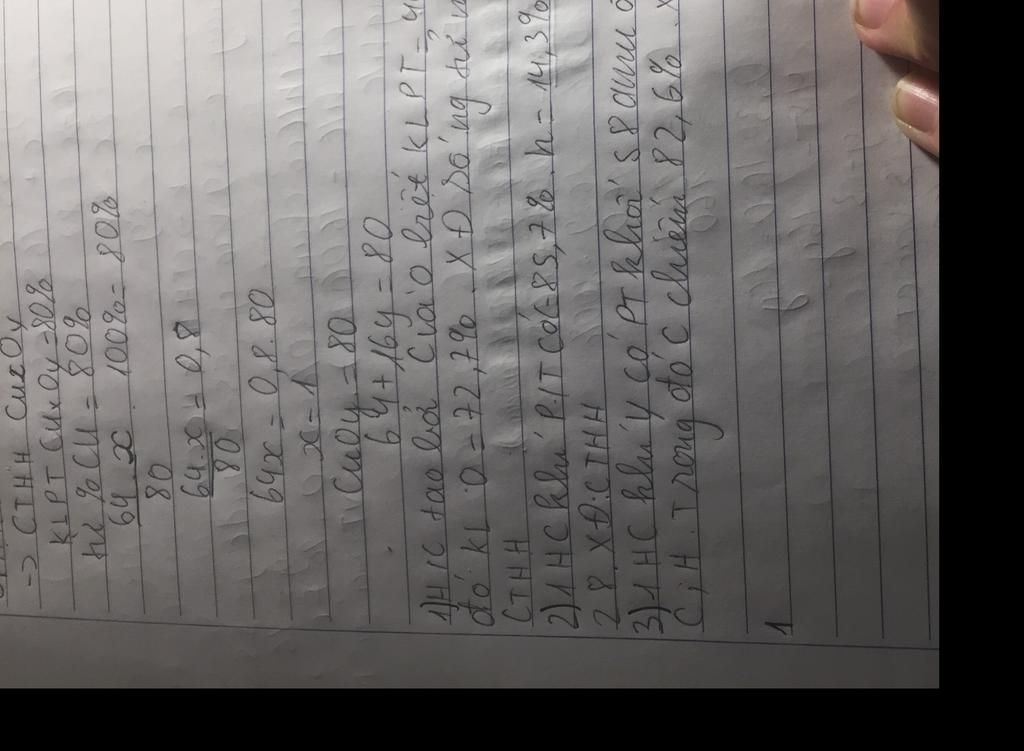 → CTHH CuxOy
KLPT CuxOy = 80%
% Cu = 80%
64.x . 100% = 80%
80
64.x = 0,8
80
64x = 0,8.80
x = 1
CuOy = 80
64 + 16y = 80
1) H/C tạo bởi C và O biết KLPT =
đó KL O = 72,7%. XĐ
CTHH
2) 1 HC khí P/T C = 85,7%. h = 14,3%
28. XĐ: CTHH
3) 1 HC khí Y có PT khối 58 amu
C, H. Trong đó C chiếm 82,6%.
1